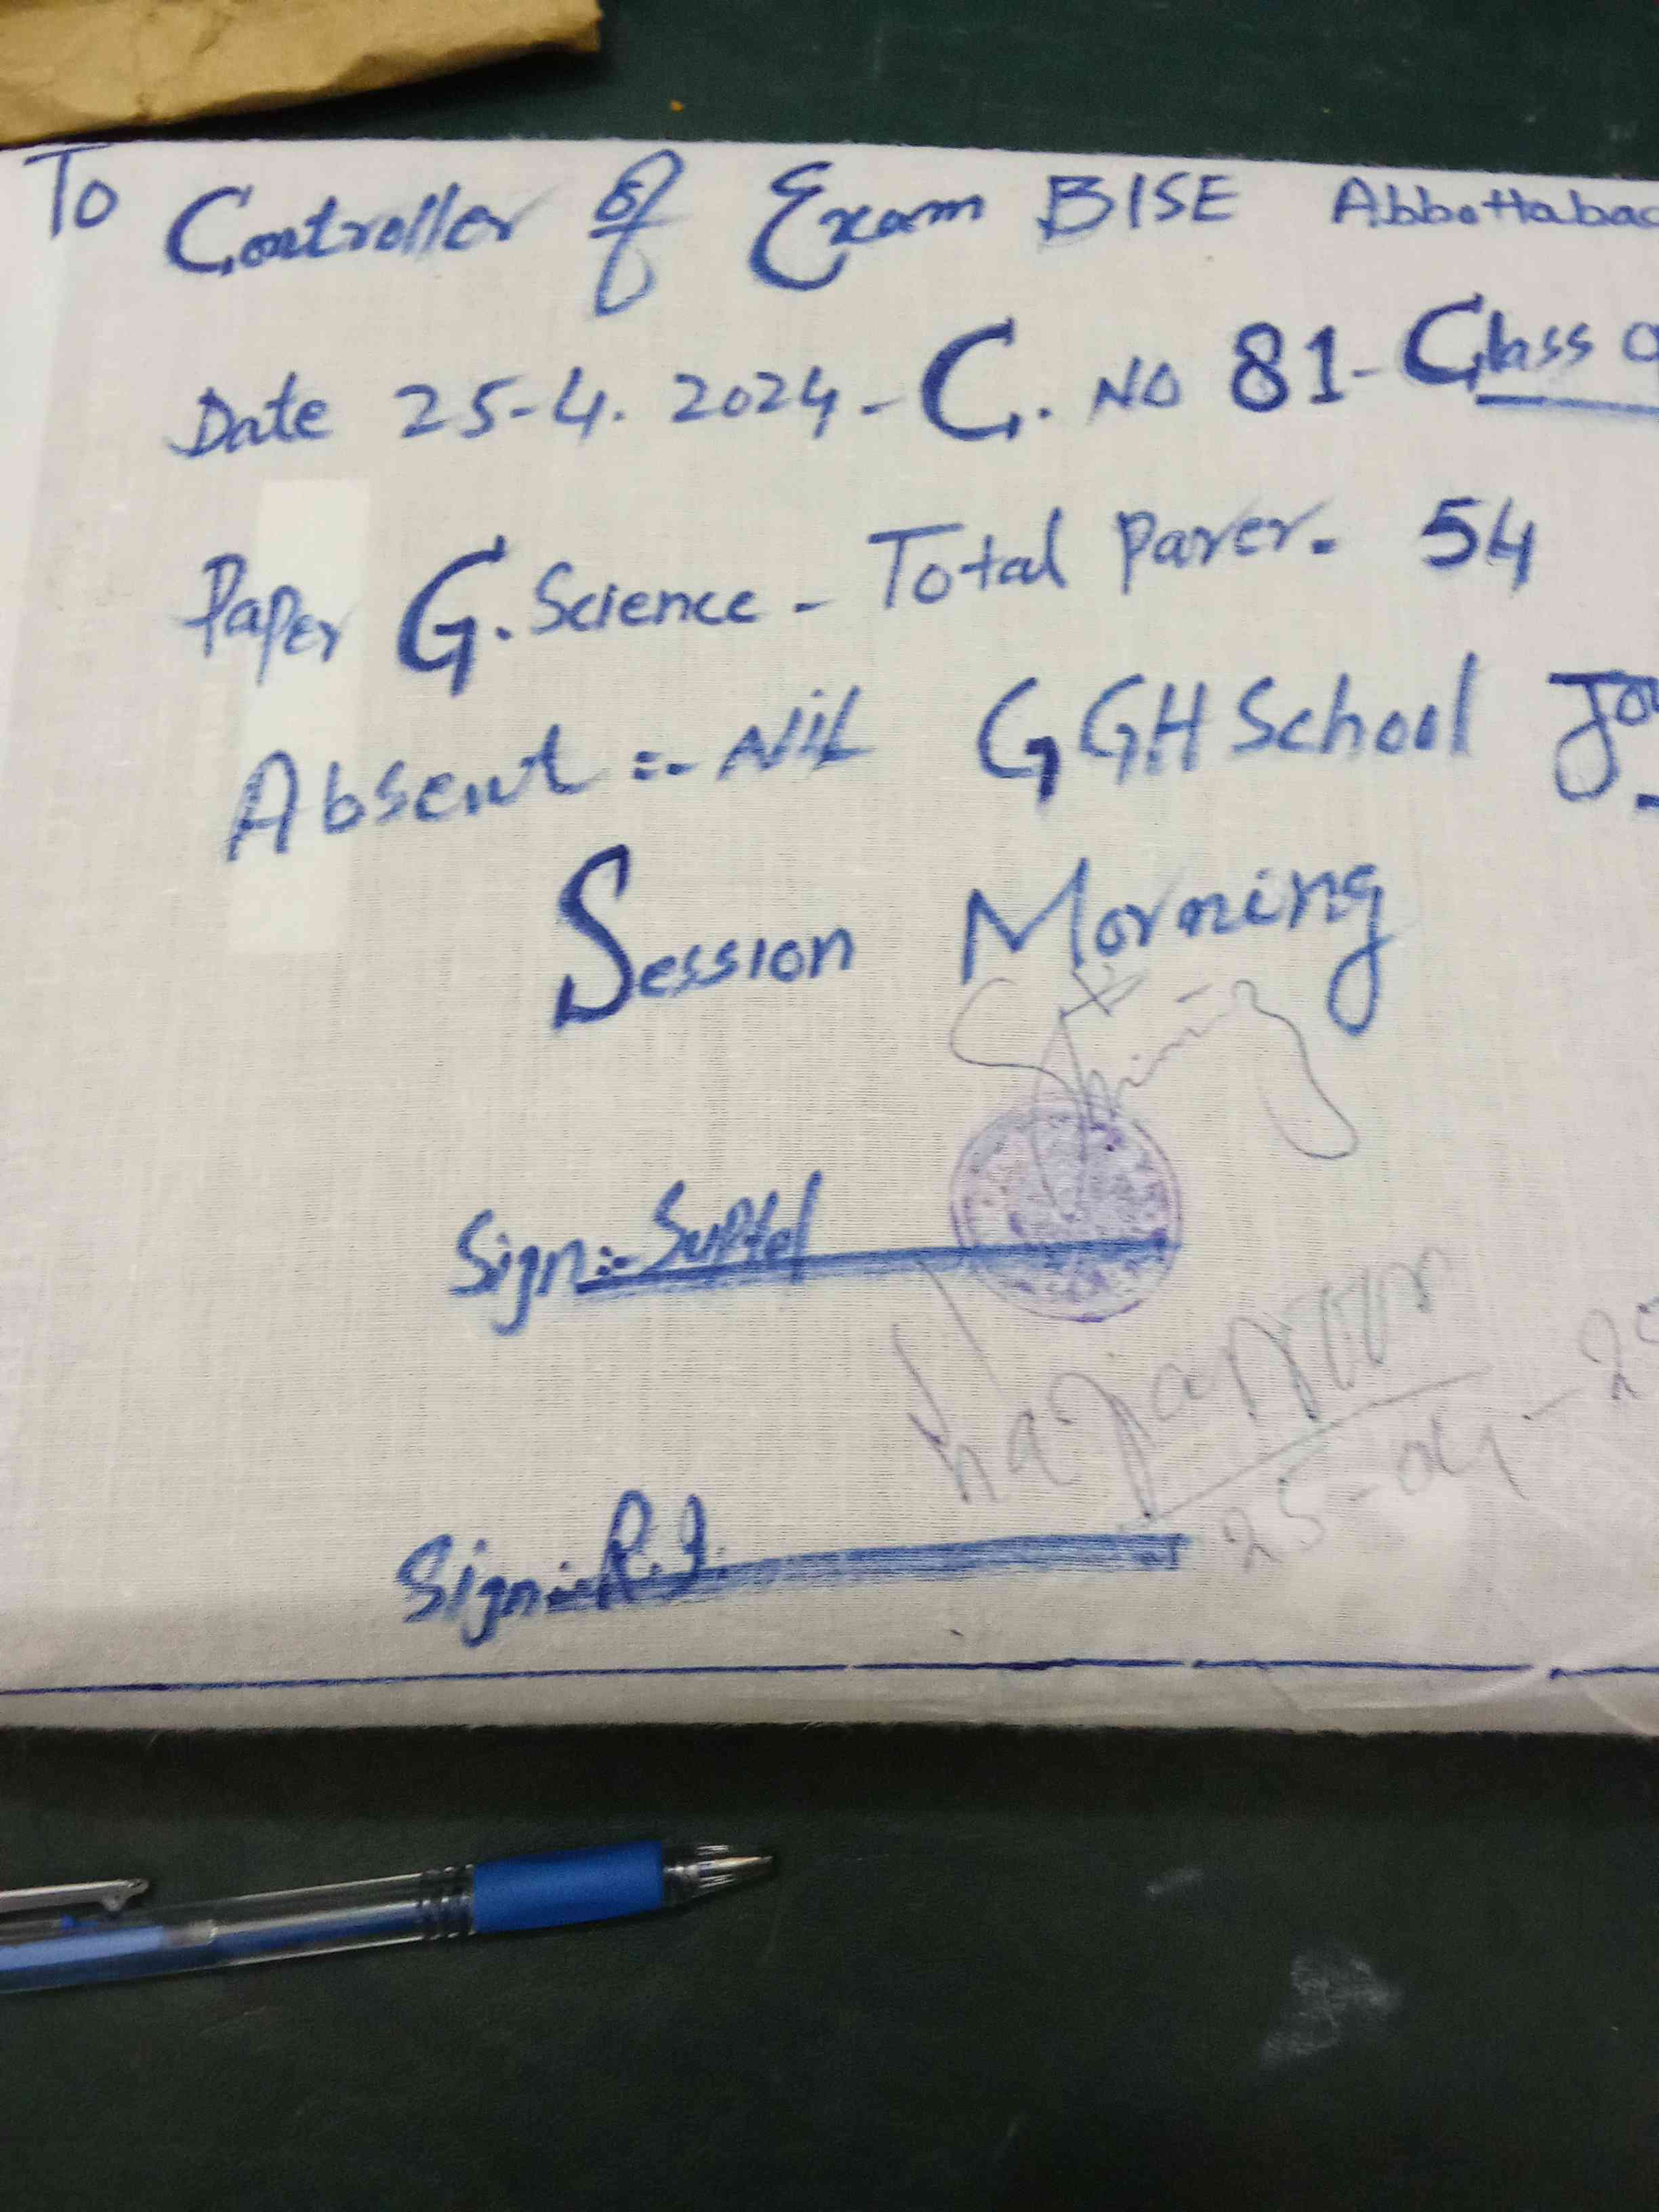 To Controller of Exam BISE Abbottabad
Date 25-4. 2024 - C. No 81 - Class 9
Paper G. Science - Total Paper. 54
Absent :- Nil GGH School
Session Morning
Sign:- Suptd
Sign:- R.I.
25-04-